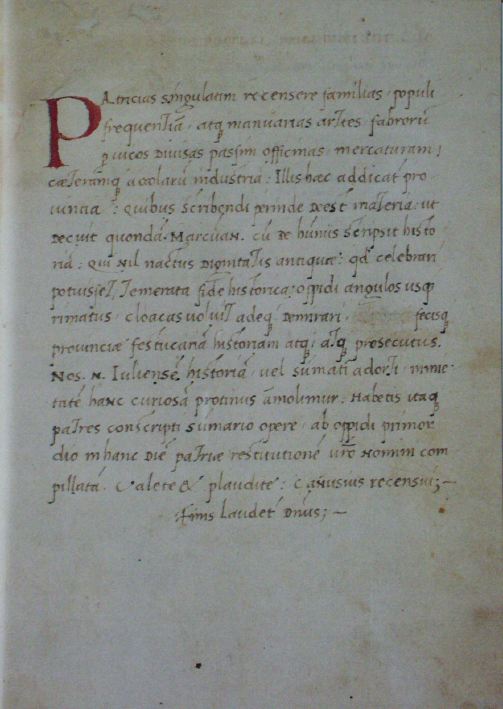 PAtricias singulatim recensere familias · populi
frequentiā · atq; manuarias artes · fabrorū
p uicos diuisas passim officinas · mercaturam;
cæteramq; acolarū industriā : Illis hæc addicat pro
uintia : Quibus scribēdi perinde deest materia : ut
decuit quondā · Marcuan. cū de huniis scripsit histo
riā : qui nil nactus dignitatis antiquæ : qd celebrari
potuisset, temerata fide historica : oppidi angulos usq;
rimatus · cloacas uoluit adeq; demirari · fecisq;
prouinciæ festucariā historiam atq; prosecutus.
Nos. n. Iuliensē historiā uel sūmati adorti · inme
tatē hanc curiosā protinus amolimur : Habetis itaq;
patres conscripti sumario opere · ab oppidi primor
dio in hanc diē patriæ restitutionē uro nomini com
pillatā. Valete & plaudite : Cānusius recensui; —
:finis laudet Dnūs; —